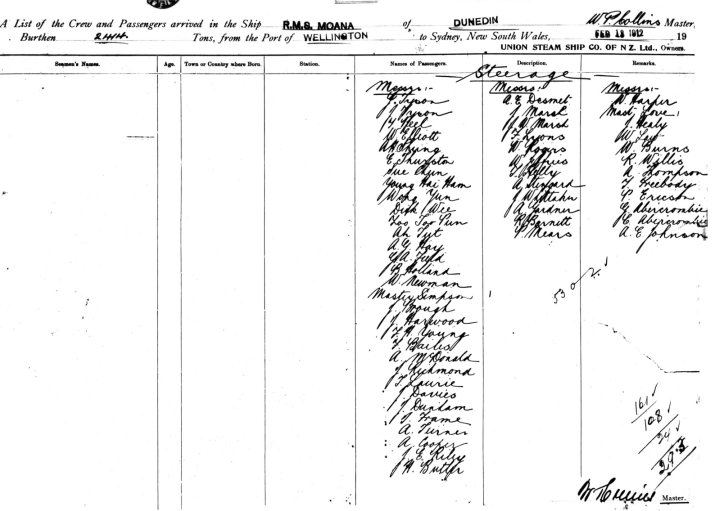 A List of the Crew and Passengers arrived in the Ship R.M.S. MOANA of DUNEDIN W P Collins Master,
Burthen 2414 Tons, from the Port of WELLINGTON to Sydney, New South Wales, FEB 13 1912 19
UNION STEAM SHIP CO. OF N Z. Ltd., Owners
Seamen's Names. Age. Town or Country where Born. Station. Names of Passengers. Description. Remarks.
Steerage
Messrs:- Messrs:- Messrs:-
J. Tyson A. E Desmet W. Harper
J. Tyson J. Marsh Mast Love
Y Feel W Marsh J. Healy
W Elliott F Lyons W.
Ah Chung W. Rogers W. Burns
E Thurston W R. Willis
Sue Chun Kelly A. Thompson
Young Hai Ham A T Freebody
Wong Yun J Whittaker P Ericson
Dick Wee A. Gardner G Abercrombie
Too Too Pun R Barnett E Abercrombie
Ah Tyt P Mears A. E Johnson
A. G. Hay
A. Field
B Holland
W. Newman
Master Simpson
J. Brough
J. Harwood
F. H. Young
T. Bailes
A. McDonald
J. Richmond
T. Laurie
J. Davies
J. Dunham
J. Frame
A. Turner
A. Cooper
J. E. Riley
H. Butler
53 0 2
161
108
24
293
Master.